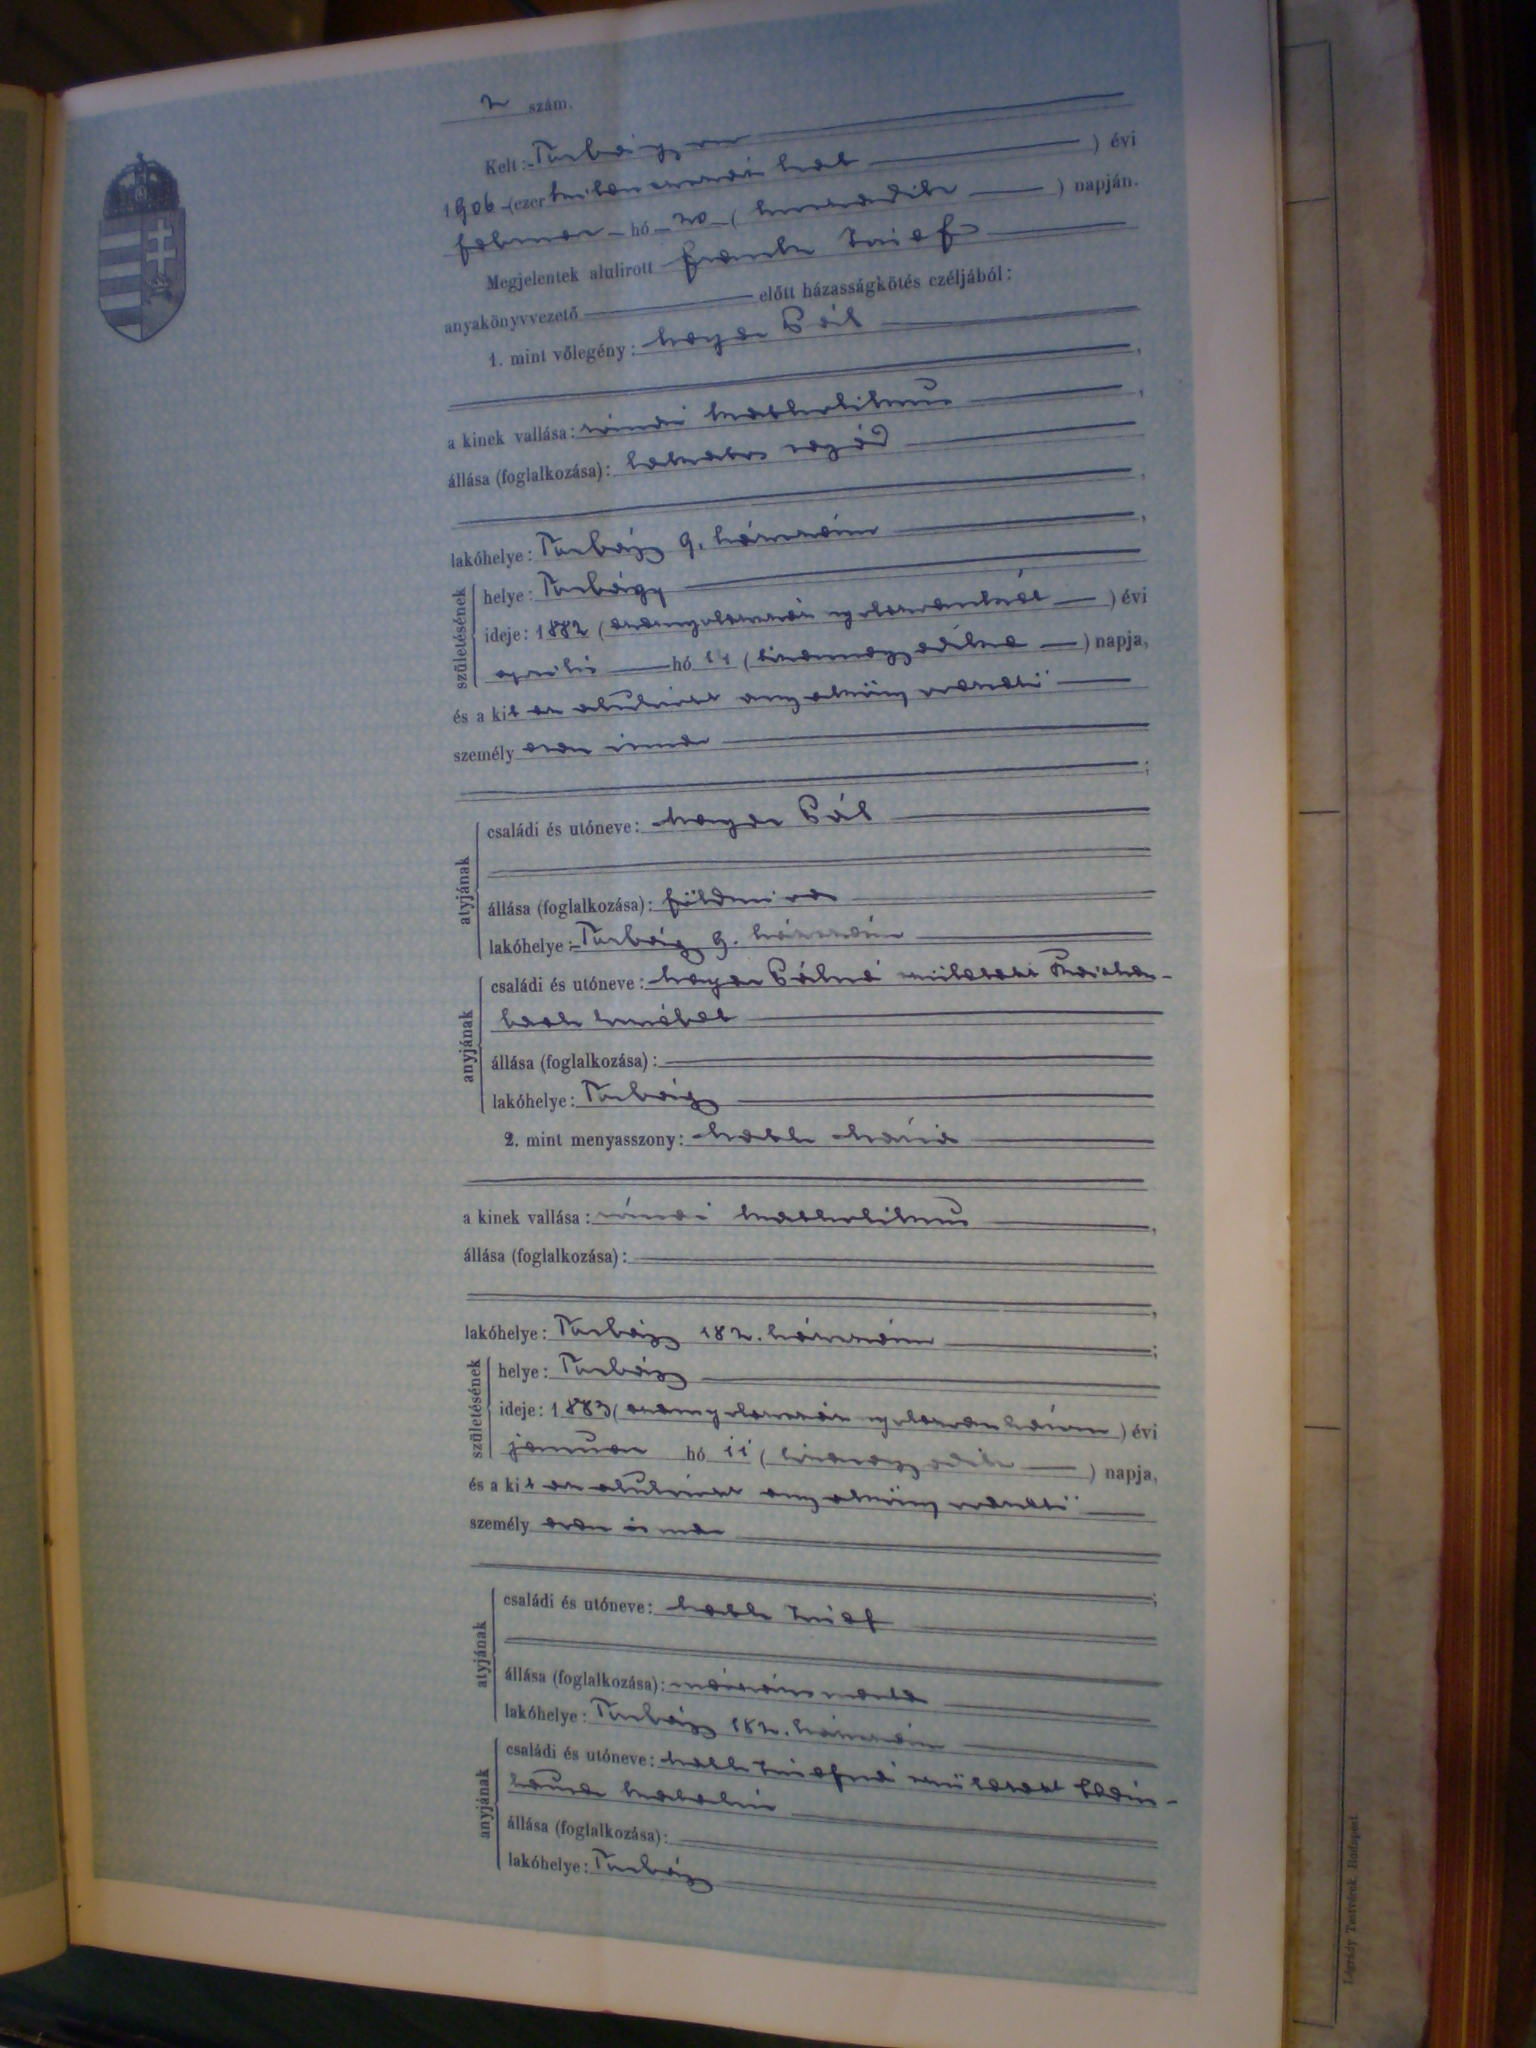 2 szám.
Kelt: Torbágyon
1906 (ezerkilenczszáz hat) évi
február hó 20 (huszadik) napján.
Megjelentek alulirott Frank József
anyakönyvvezető előtt házasságkötés czéljából:
1. mint vőlegény: Mayer Pál
a kinek vallása: római katholikus
állása (foglalkozása): lakatos segéd
lakóhelye: Torbágy 9. házszám
születésének
helye: Torbágy
ideje: 1882 (ezernyolczszáz nyolczvankét) évi
április hó 11 (tizenegyedike) napja,
és a kit az alulirott anyakönyvvezető
személyesen ismer
;
atyjának
családi és utóneve: Mayer Pál
állása (foglalkozása): földmives
lakóhelye: Torbágy 9. házszám
anyjának
családi és utóneve: Mayer Pálné született
Erzsébet
állása (foglalkozása):
lakóhelye: Torbágy
2. mint menyasszony: Mária
a kinek vallása: római katholikus
állása (foglalkozása):
lakóhelye: Torbágy 182. házszám
születésének
helye: Torbágy
ideje: 1883 (ezernyolczszáz nyolczvanhárom) évi
január hó 11 (tizenegyedik) napja,
és a kit az alulirott anyakönyvvezető
személyesen ismer
;
atyjának
családi és utóneve: József
állása (foglalkozása): mészárosmester
lakóhelye: Torbágy 182. házszám
anyjának
családi és utóneve: Józsefné született
Katalin
állása (foglalkozása):
lakóhelye: Torbágy
Légrády Testvérek, Budapest